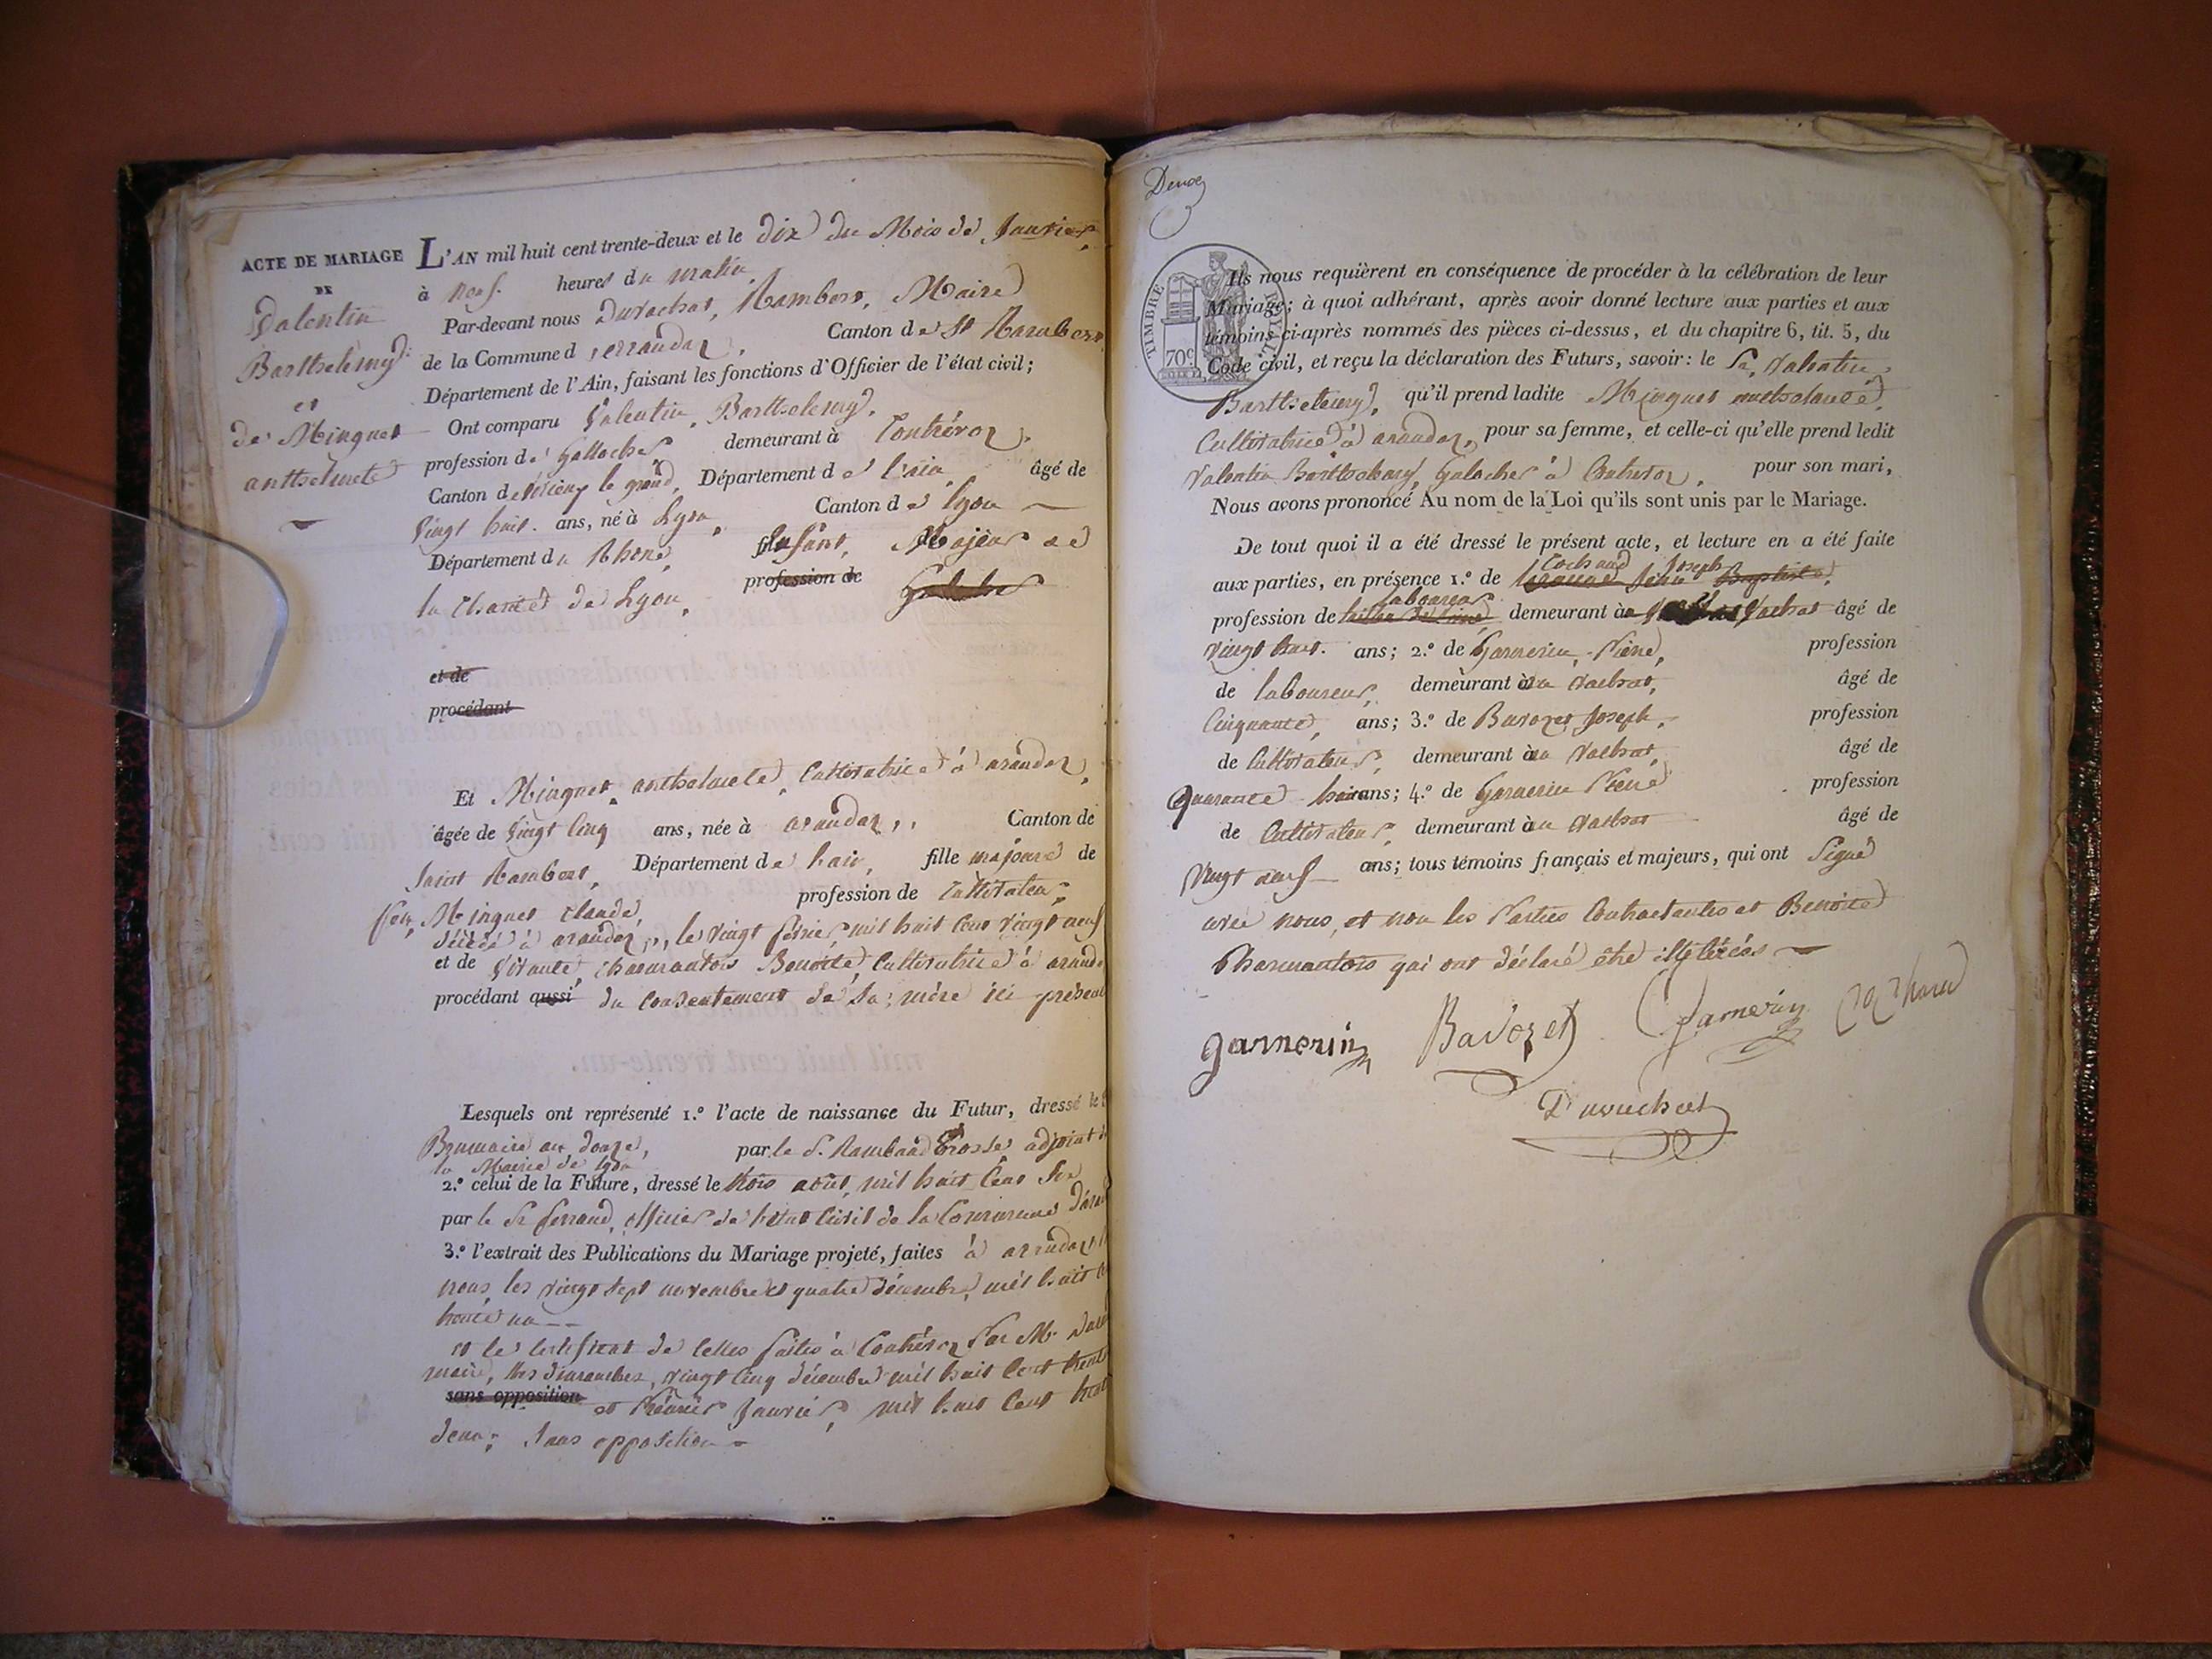 ACTE DE MARIAGE
DE
Valentin
Barthelemy
et
de Minguet
anthelmete
L'AN mil huit cent trente-deux et le dix du Mois de Janvier,
à neuf heures du matin,
Par-devant nous Duvachat, Rambert, Maire
de la Commune d'arandaz, Canton de St Rambert
Département de l'Ain, faisant les fonctions d'Officier de l'état civil;
Ont comparu Valentin, Barthelemy,
profession de Gallocher demeurant à Contrévoz,
Canton de virieux le grand, Département de l'ain, âgé de
vingt huit. ans, né à Lyon, Canton de lyon
Département du Rhone, Enfant, Majeur de
la charité de Lyon, profession de
et de
procédant
Et Minguet, anthelmete, Cultivatrice à arandaz,
âgée de vingt Cinq ans, née à arandaz, Canton de
Saint Rambert, Département de l'ain, fille majeure de
feu, Minguet Claude, profession de Cultivateur,
décédé à arandaz, le vingt février mil huit Cent vingt neuf
et de vivante Benoite, Cultivatrice à arandaz
procédant aussi du Consentement de sa mère ici présente
Lesquels ont représenté 1.º l'acte de naissance du Futur, dressé le
Brumaire an douze, par le S. Rambaud Brosse adjoint de
la Mairie de Lyon
2.º celui de la Future, dressé le trois août, mil huit Cent six
par le Sr ferrand, officier de l'état Civil de la Commune d'arandaz
3.º l'extrait des Publications du Mariage projeté, faites à arandaz
nous, les vingt sept novembre et quatre décembre, mil huit cent
trente un
et le Certificat de Celles faites à Contrévoz Par M.
maire, les dimanches, vingt Cinq décembre mil huit Cent trente
sans opposition et Premier Janvier, mil huit Cent trente
deux; Sans opposition
Ils nous requièrent en conséquence de procéder à la célébration de leur
Mariage; à quoi adhérant, après avoir donné lecture aux parties et aux
témoins ci-après nommés des pièces ci-dessus, et du chapitre 6, tit. 5, du
Code civil, et reçu la déclaration des Futurs, savoir: le Sr, Valentin,
Barthelemy, qu'il prend ladite Minguet anthelmete,
Cultivatrice à arandaz, pour sa femme, et celle-ci qu'elle prend ledit
Valentin Barthelemy, Galocher à Contrevoz, pour son mari,
Nous avons prononcé Au nom de la Loi qu'ils sont unis par le Mariage.
TIMBRE ROYAL
70c
De tout quoi il a été dressé le présent acte, et lecture en a été faite
Cochand Joseph
aux parties, en présence 1.º de Jean Baptiste,
laboureur
profession de demeurant au Vachat âgé de
vingt huit. ans; 2.º de Garnerin, Pierre, profession
de laboureur, demeurant au Vachat, âgé de
Cinquante, ans; 3.º de Bavozet Joseph, profession
de Cultivateur, demeurant au Vachat, âgé de
quarante huit ans; 4.º de Garnerin Pierre profession
de Cultivateur, demeurant au Vachat âgé de
vingt neuf ans; tous témoins français et majeurs, qui ont Signé
avec nous, et non les Parties Contractantes et Benoite
qui ont déclaré être illétérés
garnerin Bavozet Garnerin Cochand
Duvachat